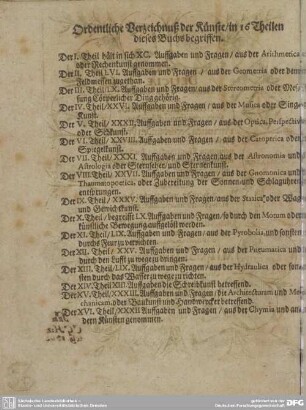 Ordentliche Verzeichnuß der Künste/in 16 Theilen
dieses Buchs begriffen.
Der I. Theil hält in sich XC. Auffgaben und Fragen/ aus der Arithmetica
oder Rechenkunst genommen.
Der II. Theil LVI. Auffgaben und Fragen / aus der Geometria oder dem
Feldmessen zugethan.
Der III. Theil/ LX. Auffgaben und Fragen/ aus der Stereometria oder Mes-
sung Cörperlicher Ding gehörig.
Der IV. Theil/ XXVI. Auffgaben und Fragen/ aus der Musica oder Sing-
Kunst.
Der V. Theil/ XXXII. Auffgaben und Fragen/ aus der Optica, Perspectiva
oder Sehkunst.
Der VI. Theil/ XXVIII. Auffgaben und Fragen/ aus der Catoptrica oder
Spiegelkunst.
Der VII. Theil/ XXXI. Auffgaben und Fragen/ aus der Astronomia und
Astrologia oder Sternseher und Sternerkunst.
Der VIII. Theil/ XXVII. Auffgaben und Fragen/ aus der Gnomonica und
Thaummopoetica, oder Zubereitung der Sonnen und Schlaguhren
entsprungen.
Der IX. Theil/ XXXV. Auffgaben und Fragen/ aus der Statica oder Wag
und Gewichtkunst.
Der X. Theil/ begreifft LX. Auffgaben und Fragen/ so durch den Motum oder
künstliche Bewegung auffgelöst werden.
Der XI. Theil/ LIX. Auffgaben und Fragen/ aus der Pyrobolia und sonsten
durchs Feur zu verrichten.
Der XII. Theil/ XXV. Auffgaben und Fragen/ aus der Pneumatica und
durch den Lufft zu wegen bringen.
Der XIII. Theil/ LIX. Auffgaben und Fragen/ aus der Hydraulica oder son-
sten durch das Wasser zu wegen richten.
Der XIV. Theil XIII. Auffgaben die Schreibkunst betreffend.
Der XV. Theil/ XXXIII. Auffgaben und Fragen/ die Architectur und Me-
chanicam, oder Baukunst und Handwercker betreffend.
Der XVI. Theil/ XXXII. Auffgaben und Fragen / aus der Chymia und an-
dern Künsten genommen.
Deutsche Forschungsgemeinschaft
DFG